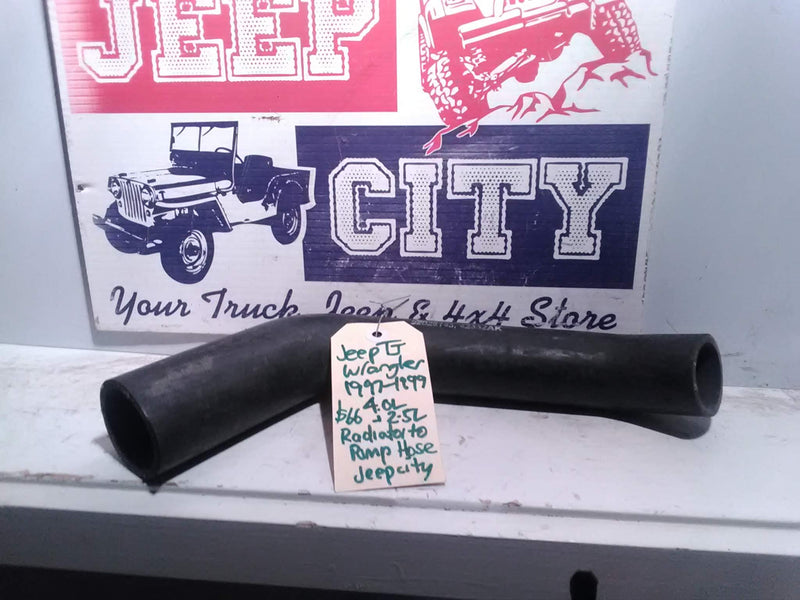 JEEP
CITY
Your Truck, Jeep & 4x4 Store
Jeep TJ
Wrangler
1997-1999
4.0L
$66 & 2.5L
Radiator to
Pump Hose
Jeepcity